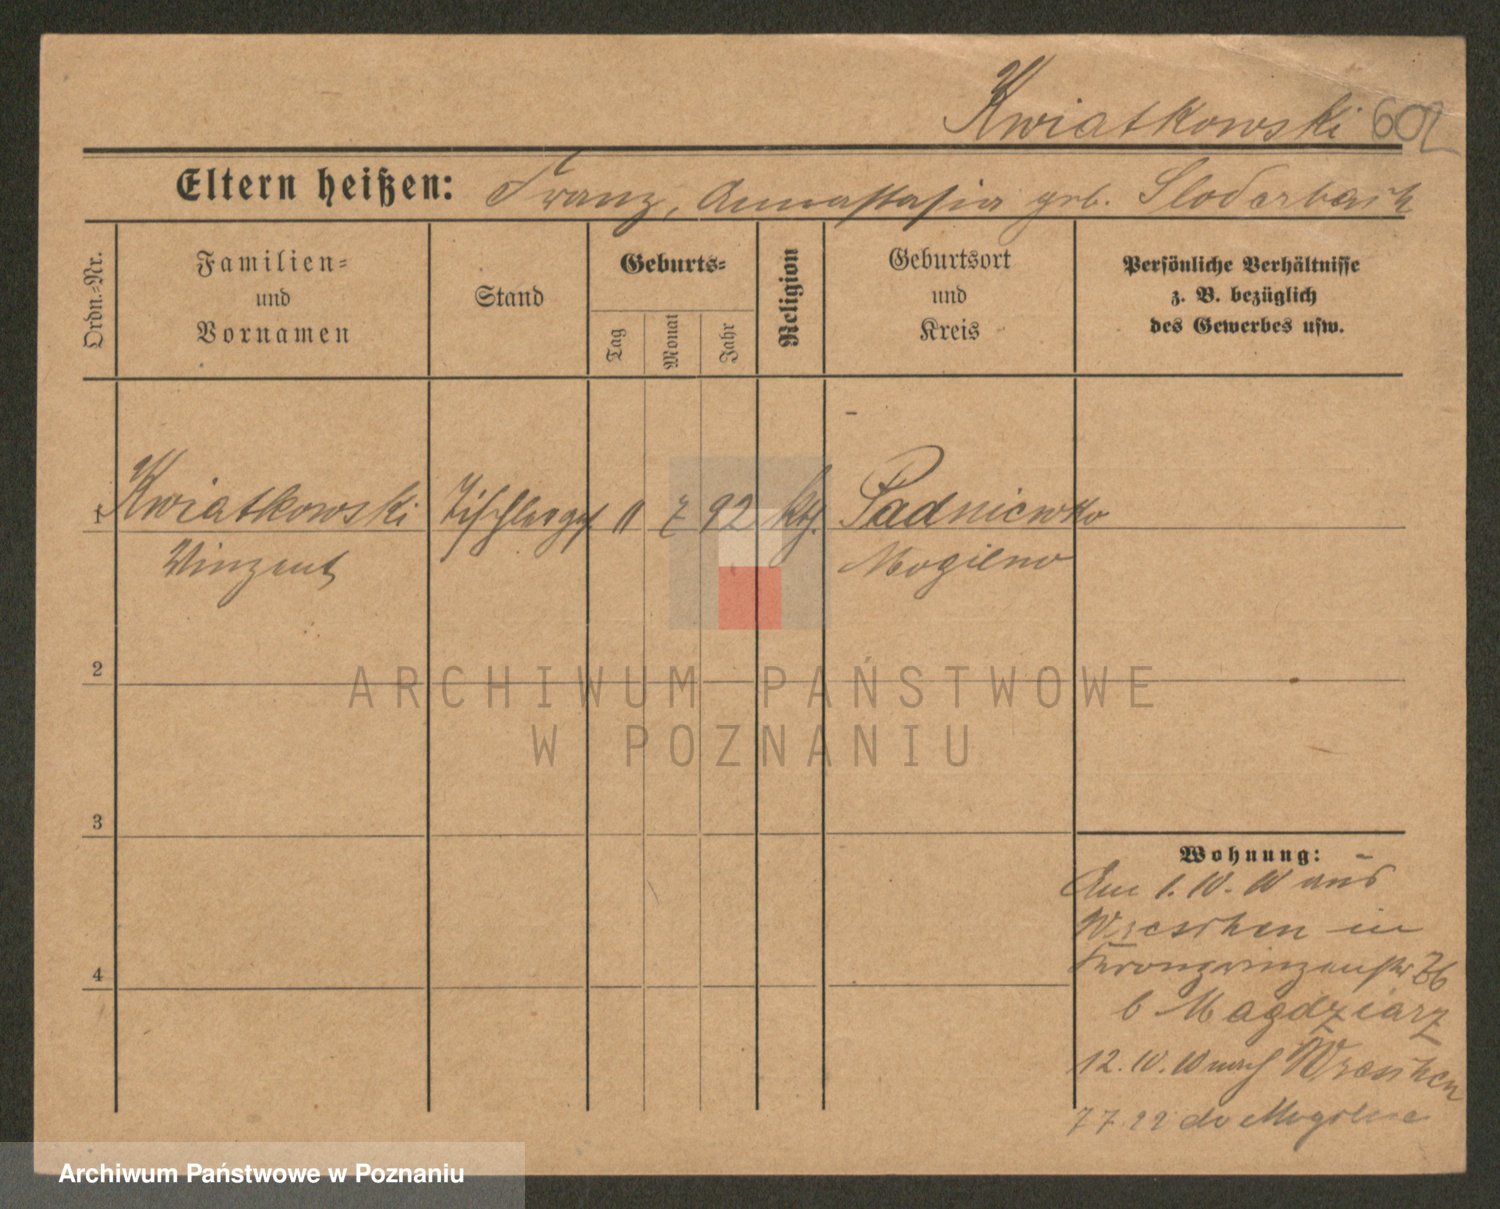 Kwiatkowski 602
Eltern heißen: Franz, Annastasia geb. Sloderbach
Ordn.-Nr.
Familien-
und
Vornamen
Stand
Geburts-
Tag
Monat
Jahr
Religion
Geburtsort
und
Kreis
Persönliche Verhältnisse
z. B. bezüglich
des Gewerbes usw.
1 Kwiatkowski Tischlerges 11 7 92 kth. Padniewko
Vinzent Mogilno
2
3
4
Wohnung:
Am 1.10.10 aus
Wreschen in
Kronprinzenstr 76
b Magdziarz
12.10.10 nach Wreschen
7 7 22 do
ARCHIWUM PAŃSTWOWE
W POZNANIU
Archiwum Państwowe w Poznaniu